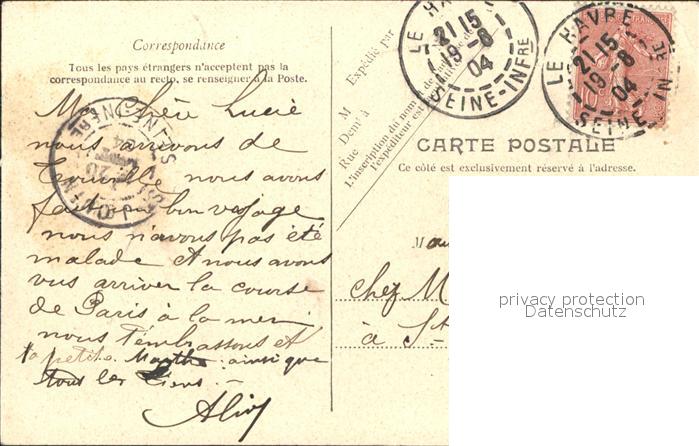 Correspondance
Tous les pays étrangers n'acceptent pas la
correspondance au recto, se renseigner à la Poste.
Ma Chère Lucie
nous arrivons de
Trouville nous avons
fait un bon voyage
nous n'avons pas été
malade et nous avons
vus arriver la course
de Paris à la mer
nous t'embrassons et
ta petite Marthe ainsi que
tous les tiens.
Expédié par
M
Dem.t à
Rue
L'inscription du nom
de l'expéditeur est
LE HAVRE
21 15
19-8
04
SEINE-INFRE
LE HAVRE
21 15
19-8
04
SEINE-IN RE
10
CARTE POSTALE
Ce côté est exclusivement réservé à l'adresse.
M
chez M
à St-
privacy protection
Datenschutz